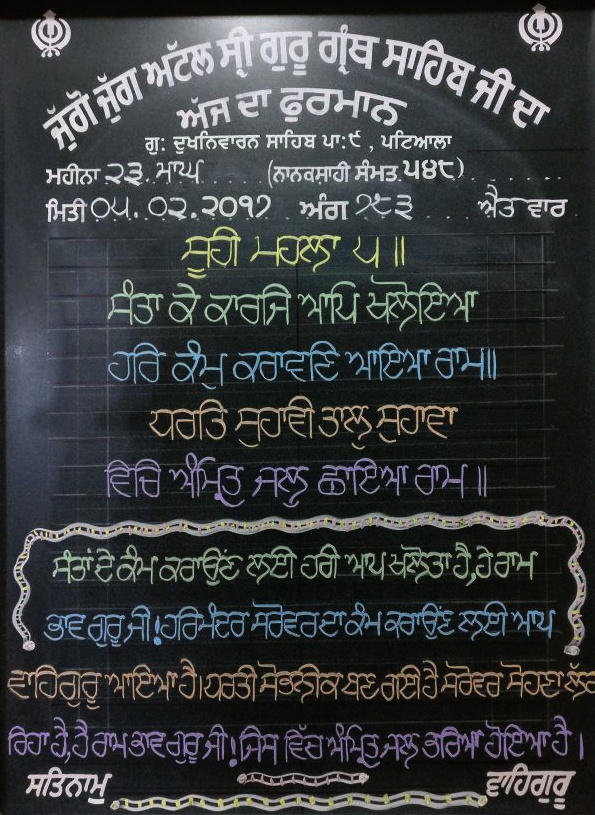 ਜੁੱਗੋ ਜੁੱਗ ਅਟੱਲ ਸ੍ਰੀ ਗੁਰੂ ਗ੍ਰੰਥ ਸਾਹਿਬ ਜੀ ਦਾ
ਅੱਜ ਦਾ ਫੁਰਮਾਨ
ਗੁ: ਦੁਖਨਿਵਾਰਨ ਸਾਹਿਬ ਪਾ:੯ , ਪਟਿਆਲਾ
ਮਹੀਨਾ ੨੩ ਮਾਘ (ਨਾਨਕਸ਼ਾਹੀ ਸੰਮਤ ੫੪੮)
ਮਿਤੀ ੦੫. ੦੨. ੨੦੧੭ ਅੰਗ ੭੮੩ ਐਤ ਵਾਰ
ਸੂਹੀ ਮਹਲਾ ੫ ॥
ਸੰਤਾ ਕੇ ਕਾਰਜਿ ਆਪਿ ਖਲੋਇਆ
ਹਰਿ ਕੰਮੁ ਕਰਾਵਣਿ ਆਇਆ ਰਾਮ॥
ਧਰਤਿ ਸੁਹਾਵੀ ਤਾਲੁ ਸੁਹਾਵਾ
ਵਿਚਿ ਅੰਮ੍ਰਿਤ ਜਲੁ ਛਾਇਆ ਰਾਮ ॥
ਸੰਤਾਂ ਦੇ ਕੰਮ ਕਰਾਉਣ ਲਈ ਹਰੀ ਆਪ ਖਲੋਤਾ ਹੈ, ਹੇ ਰਾਮ
ਭਾਵ ਗੁਰੂ ਜੀ! ਹਰਿਮੰਦਰ ਸਰੋਵਰ ਦਾ ਕੰਮ ਕਰਾਉਣ ਲਈ ਆਪ
ਵਾਹਿਗੁਰੂ ਆਇਆ ਹੈ। ਧਰਤੀ ਸੋਭਨੀਕ ਬਣ ਗਈ ਹੈ ਸਰੋਵਰ ਸੋਹਣਾ ਲੱਗ
ਰਿਹਾ ਹੈ, ਹੇ ਰਾਮ ਭਾਵ ਗੁਰੂ ਜੀ! ਜਿਸ ਵਿੱਚ ਅੰਮ੍ਰਿਤ ਜਲ ਭਰਿਆ ਹੋਇਆ ਹੈ।
ਸਤਿਨਾਮੁ ਵਾਹਿਗੁਰੂ